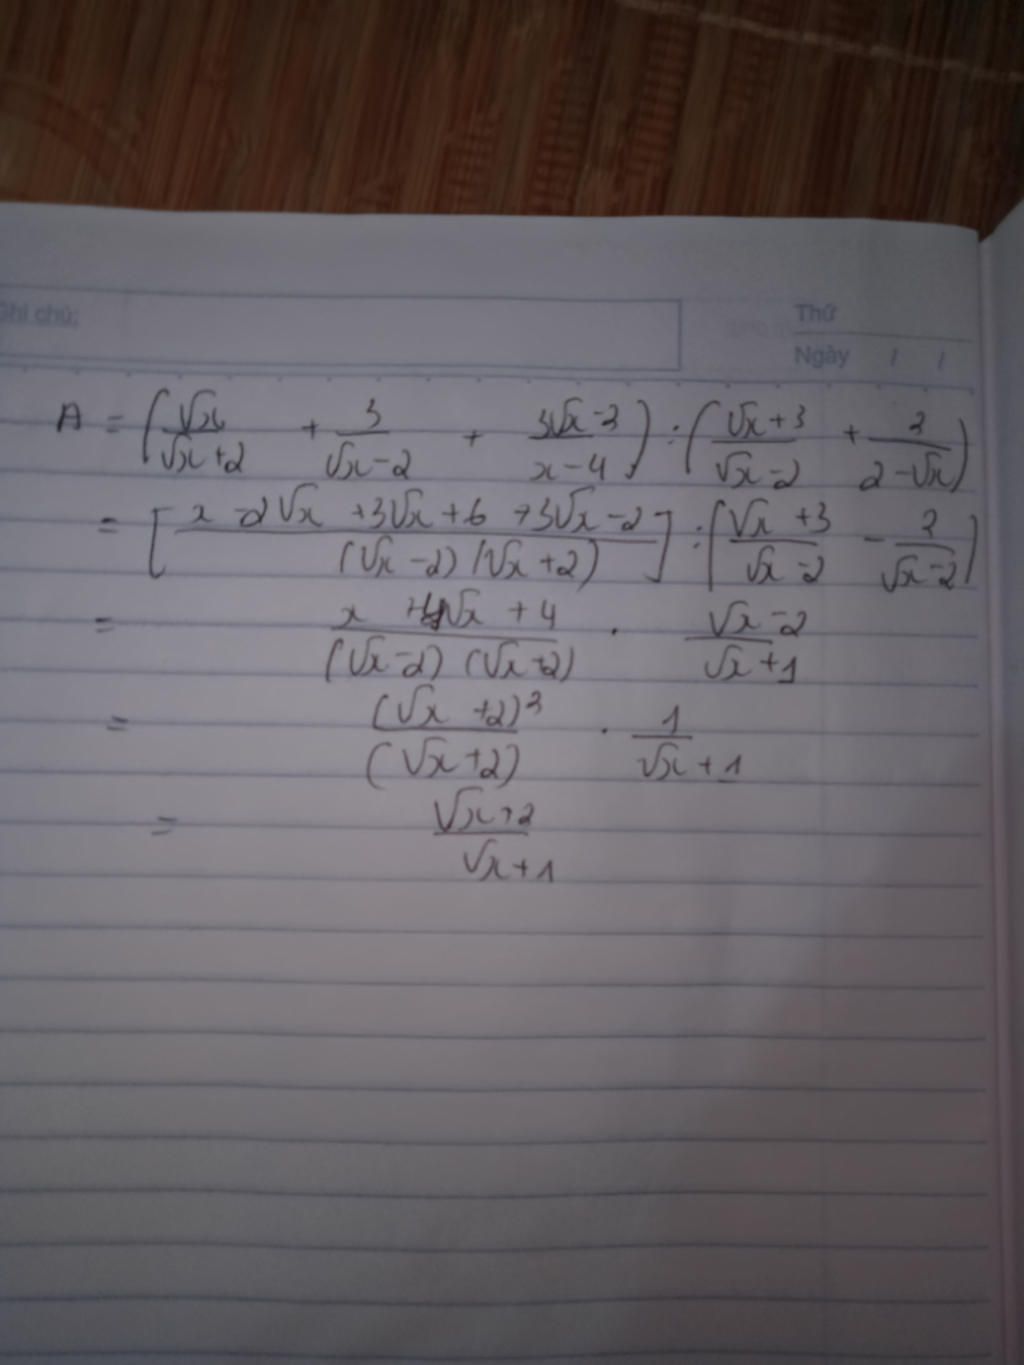 Ghi chú:
Thứ
Ngày / /
A = (√x/(√x+2) + 3/(√x-2) + (3√x-2)/(x-4)) : ((√x+3)/(√x-2) + 2/(2-√x))
= [(x-2√x+3√x+6+3√x-2)/((√x-2)(√x+2))] : ((√x+3)/(√x-2) - 2/(√x-2))
= (x+4√x+4)/((√x-2)(√x+2)) . (√x-2)/(√x+1)
= (√x+2)²/(√x+2) . 1/(√x+1)
= (√x+2)/(√x+1)